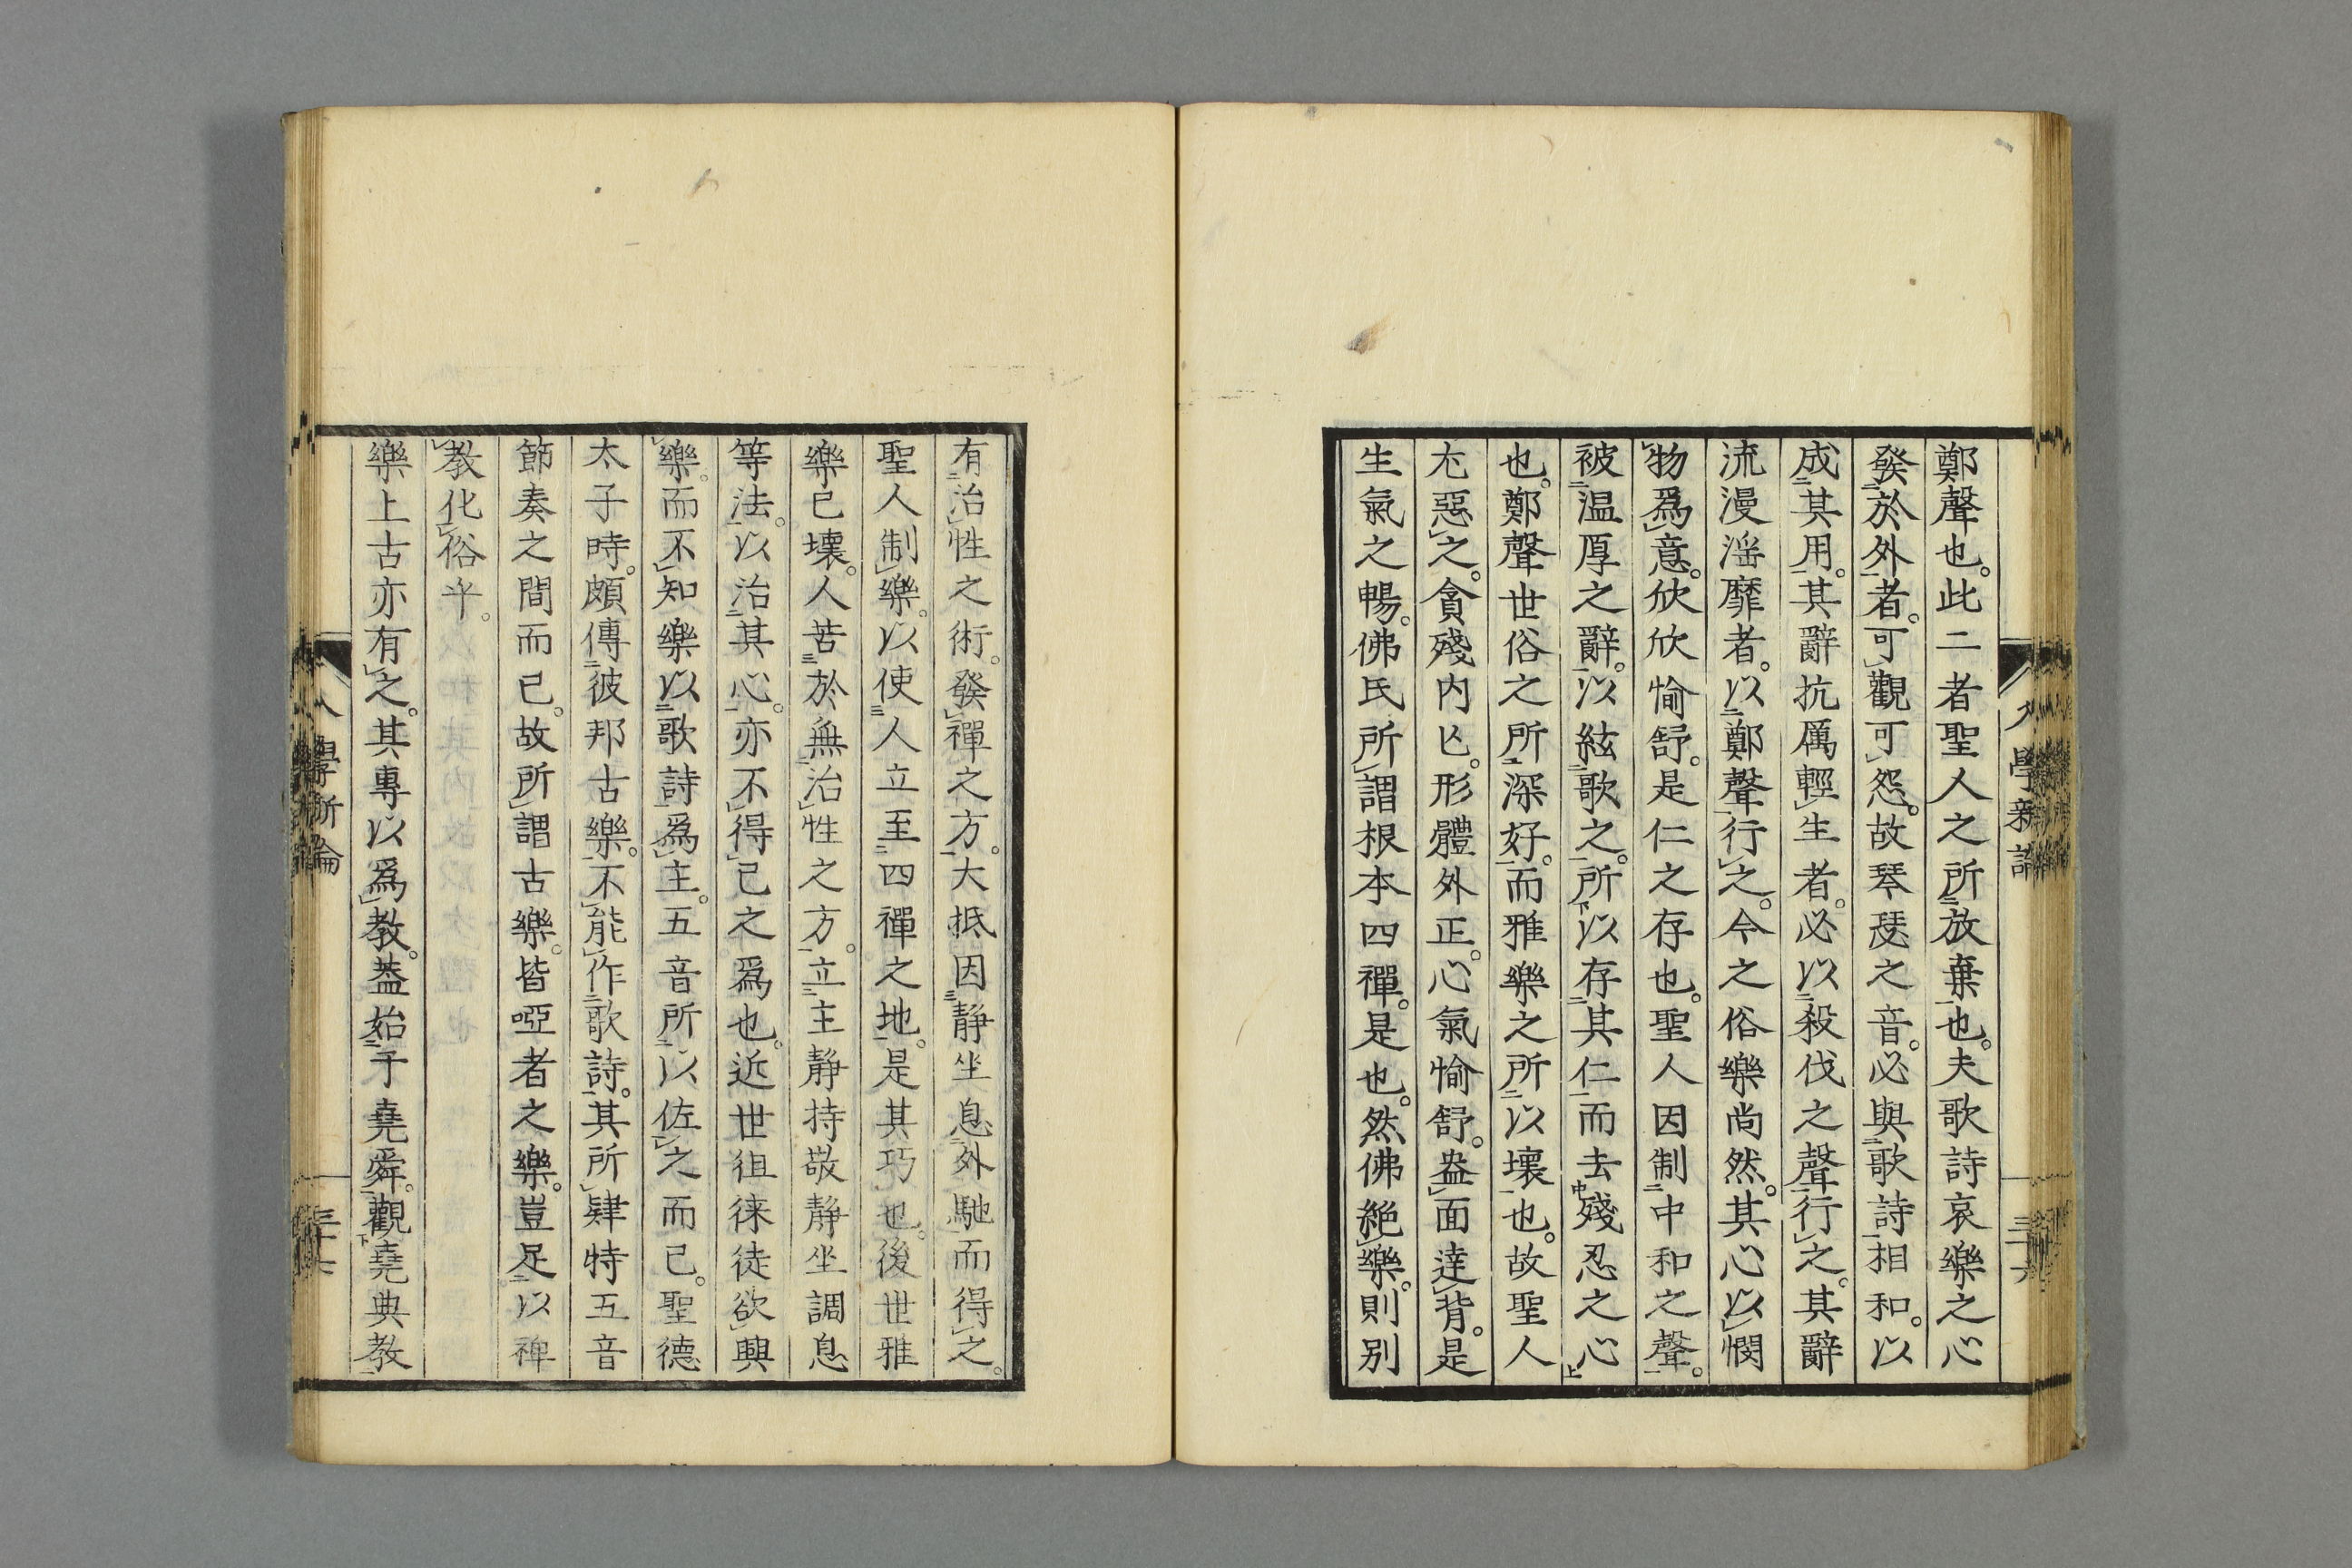 鄭聲也。此二者聖人之所放棄也。夫歌詩哀樂之心
發於外者。可觀可怨。故琴瑟之音。必與歌詩相和。以
成其用。其辭抗厲輕生者。必以殺伐之聲行之。其辭
流漫滛靡者。以鄭聲行之。今之俗樂尚然。其心以憫
物爲意。欣欣愉舒。是仁之存也。聖人因制中和之聲。
被温厚之辭。以絃歌之。所以存其仁而去殘忍之心
也。鄭聲世俗之所深好。而雅樂之所以壞也。故聖人
尢惡之。貪殘内亾。形體外正。心氣愉舒。盎面達背。是
生氣之暢。佛氏所謂根本四禪。是也。然佛絶樂。則别
有治性之術。發禪之方。大抵因靜坐息外馳而得之。
聖人制樂。以使人立至四禪之地。是其巧也。後世雅
樂已壞。人苦於無治性之方。立主靜持敬靜坐調息
等法。以治其心。亦不得已之爲也。近世徂徠徒欲興
樂。而不知樂以歌詩爲主。五音所以佐之而已。聖德
太子時。頗傳彼邦古樂。不能作歌詩。其所肄特五音
節奏之間而已。故所謂古樂。皆啞者之樂。豈足以裨
教化俗乎。
樂上古亦有之。其專以爲教。葢始于堯舜。觀堯典教